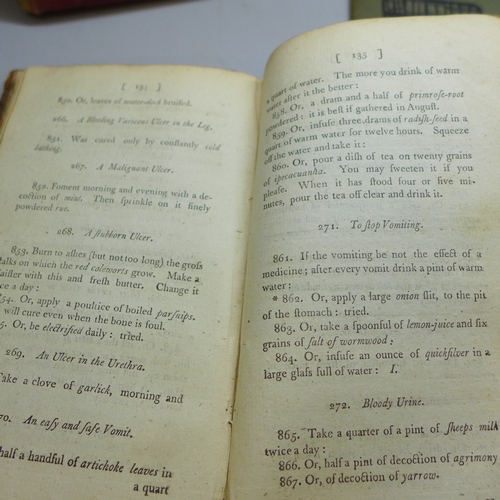 [ 134 ]
850. Or, leaves of water-dock broiled.
266. A Bleeding Varicous Ulcer in the Leg,
851. Was cured only by constantly cold
bathing.
267. A Malignant Ulcer.
852. Foment morning and evening with a de-
coction of mint. Then sprinkle on it finely
powdered rue.
268. A stubborn Ulcer.
853. Burn to ashes (but not too long) the gross
stalks on which the red coleworts grow. Make a
plaister with this and fresh butter. Change it
twice a day:
54. Or, apply a poultice of boiled parsnips.
will cure even when the bone is foul.
5. Or, be electrified daily: tried.
269. An Ulcer in the Urethra.
Take a clove of garlick, morning and
70. An easy and safe Vomit.
half a handful of artichoke leaves in
a quart
[ 135 ]
a quart of water. The more you drink of warm
water after it the better:
858. Or, a dram and a half of primrose-root
powdered: it is best if gathered in August.
859. Or, infuse three drams of radish-seed in a
quart of warm water for twelve hours. Squeeze
off the water and take it:
860. Or, pour a dish of tea on twenty grains
of ipecacuanha. You may sweeten it if you
please. When it has stood four or five mi-
nutes, pour the tea off clear and drink it.
271. To stop Vomiting.
861. If the vomiting be not the effect of a
medicine; after every vomit drink a pint of warm
water:
* 862. Or, apply a large onion slit, to the pit
of the stomach: tried.
863. Or, take a spoonful of lemon-juice and six
grains of salt of wormwood:
864. Or, infuse an ounce of quicksilver in a
large glass full of water: I.
272. Bloody Urine.
865. Take a quarter of a pint of sheeps milk
twice a day:
866. Or, half a pint of decoction of agrimony
867. Or, of decoction of yarrow.